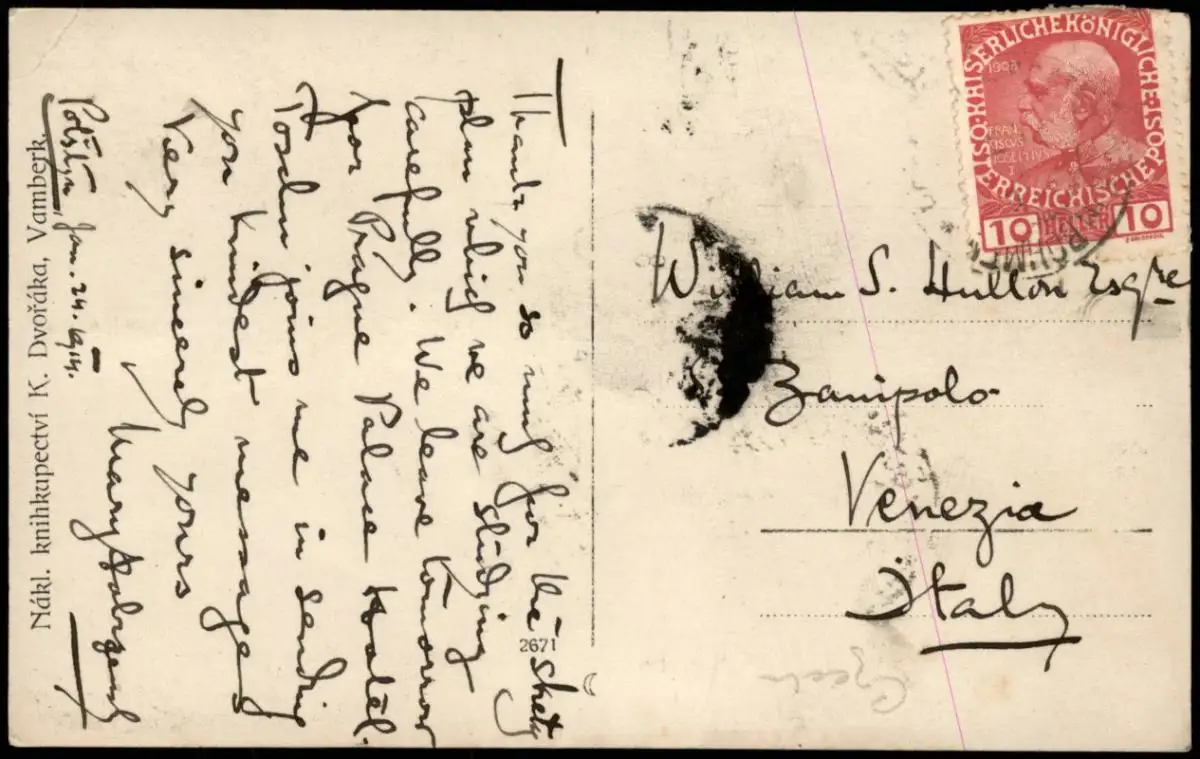 Thank you so much for the sketch
plan which we are studying
carefully. We leave tomorrow
for Prague Palace Hotel.
joins me in sending
you kindest messages
Very sincerely yours
Mary
Potštyn, Jan. 24. 1914.
Nákl. knihkupectví K. Dvořáka, Vamberk.
2671
KAISERLICHE KÖNIGLICHE ÖSTERREICHISCHE POST
1908
FRANCISCVS
IOSEPHVS
I
10 HELLER 10
William S. Hulton Esqre
Zanipolo
Venezia
Italy
Czech